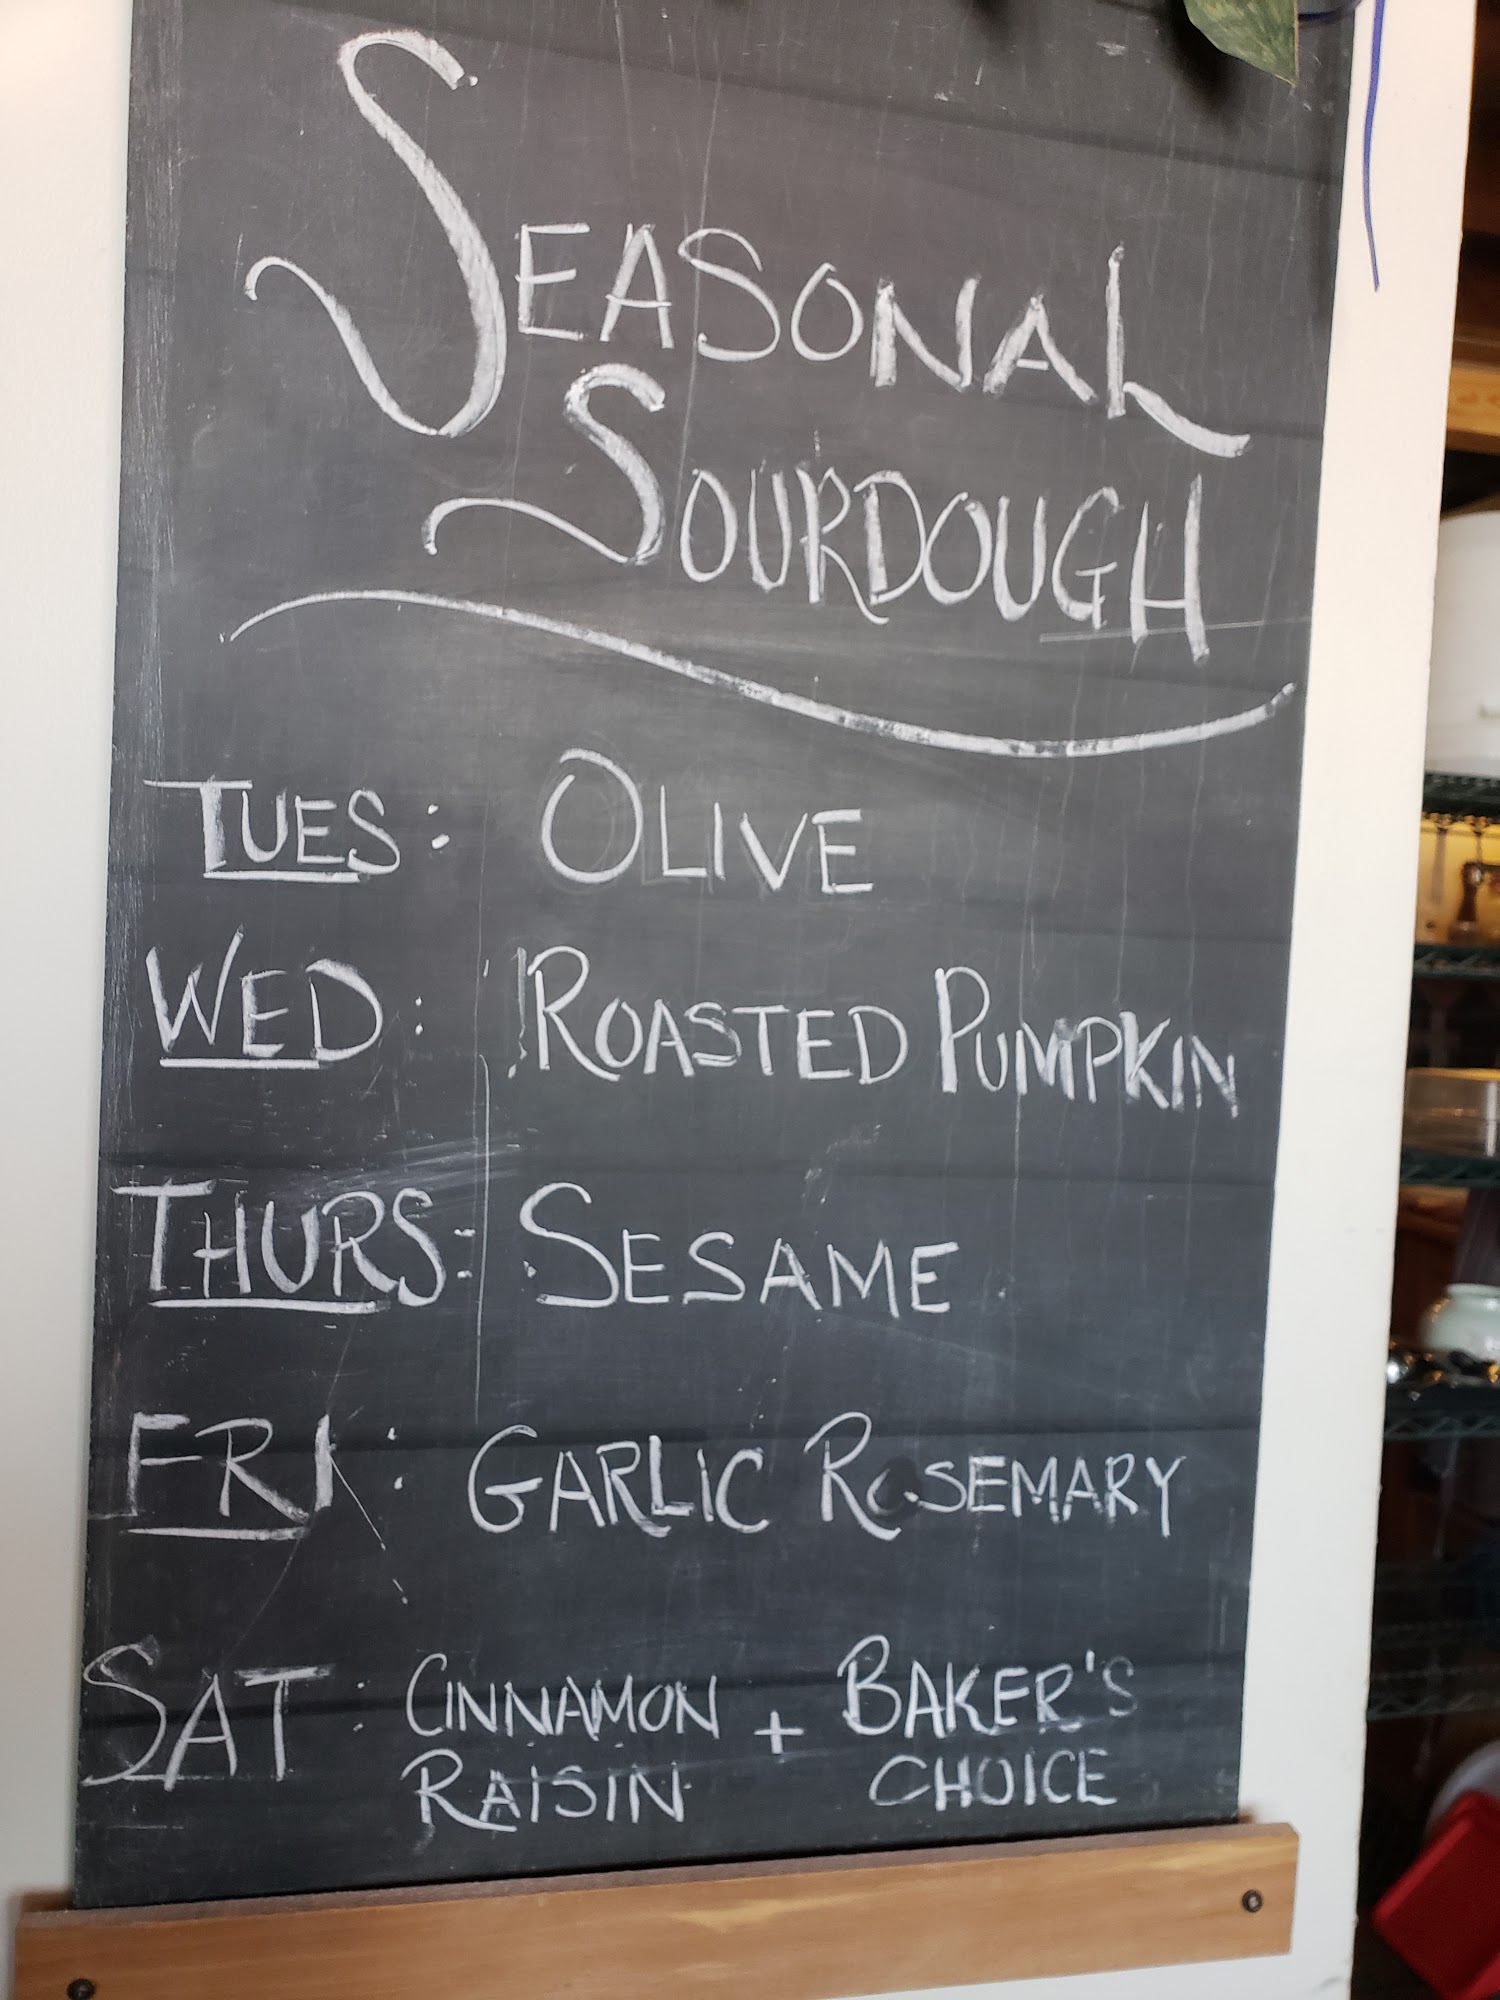 SEASONAL
SOURDOUGH
TUES: OLIVE
WED: ROASTED PUMPKIN
THURS: SESAME
FRI: GARLIC ROSEMARY
SAT: CINNAMON RAISIN + BAKER'S CHOICE